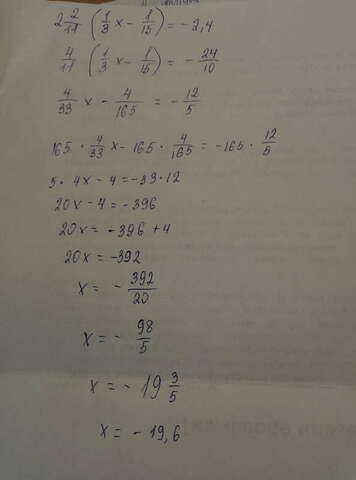 2 2/11 (1/3 x - 1/15) = -2,4
4/11 (1/3 x - 1/15) = - 24/10
4/33 x - 4/165 = - 12/5
165 · 4/33 x - 165 · 4/165 = -165 · 12/5
5 · 4x - 4 = -33 · 12
20x - 4 = -396
20x = -396 + 4
20x = -392
x = - 392/20
x = - 98/5
x = - 19 3/5
x = - 19,6